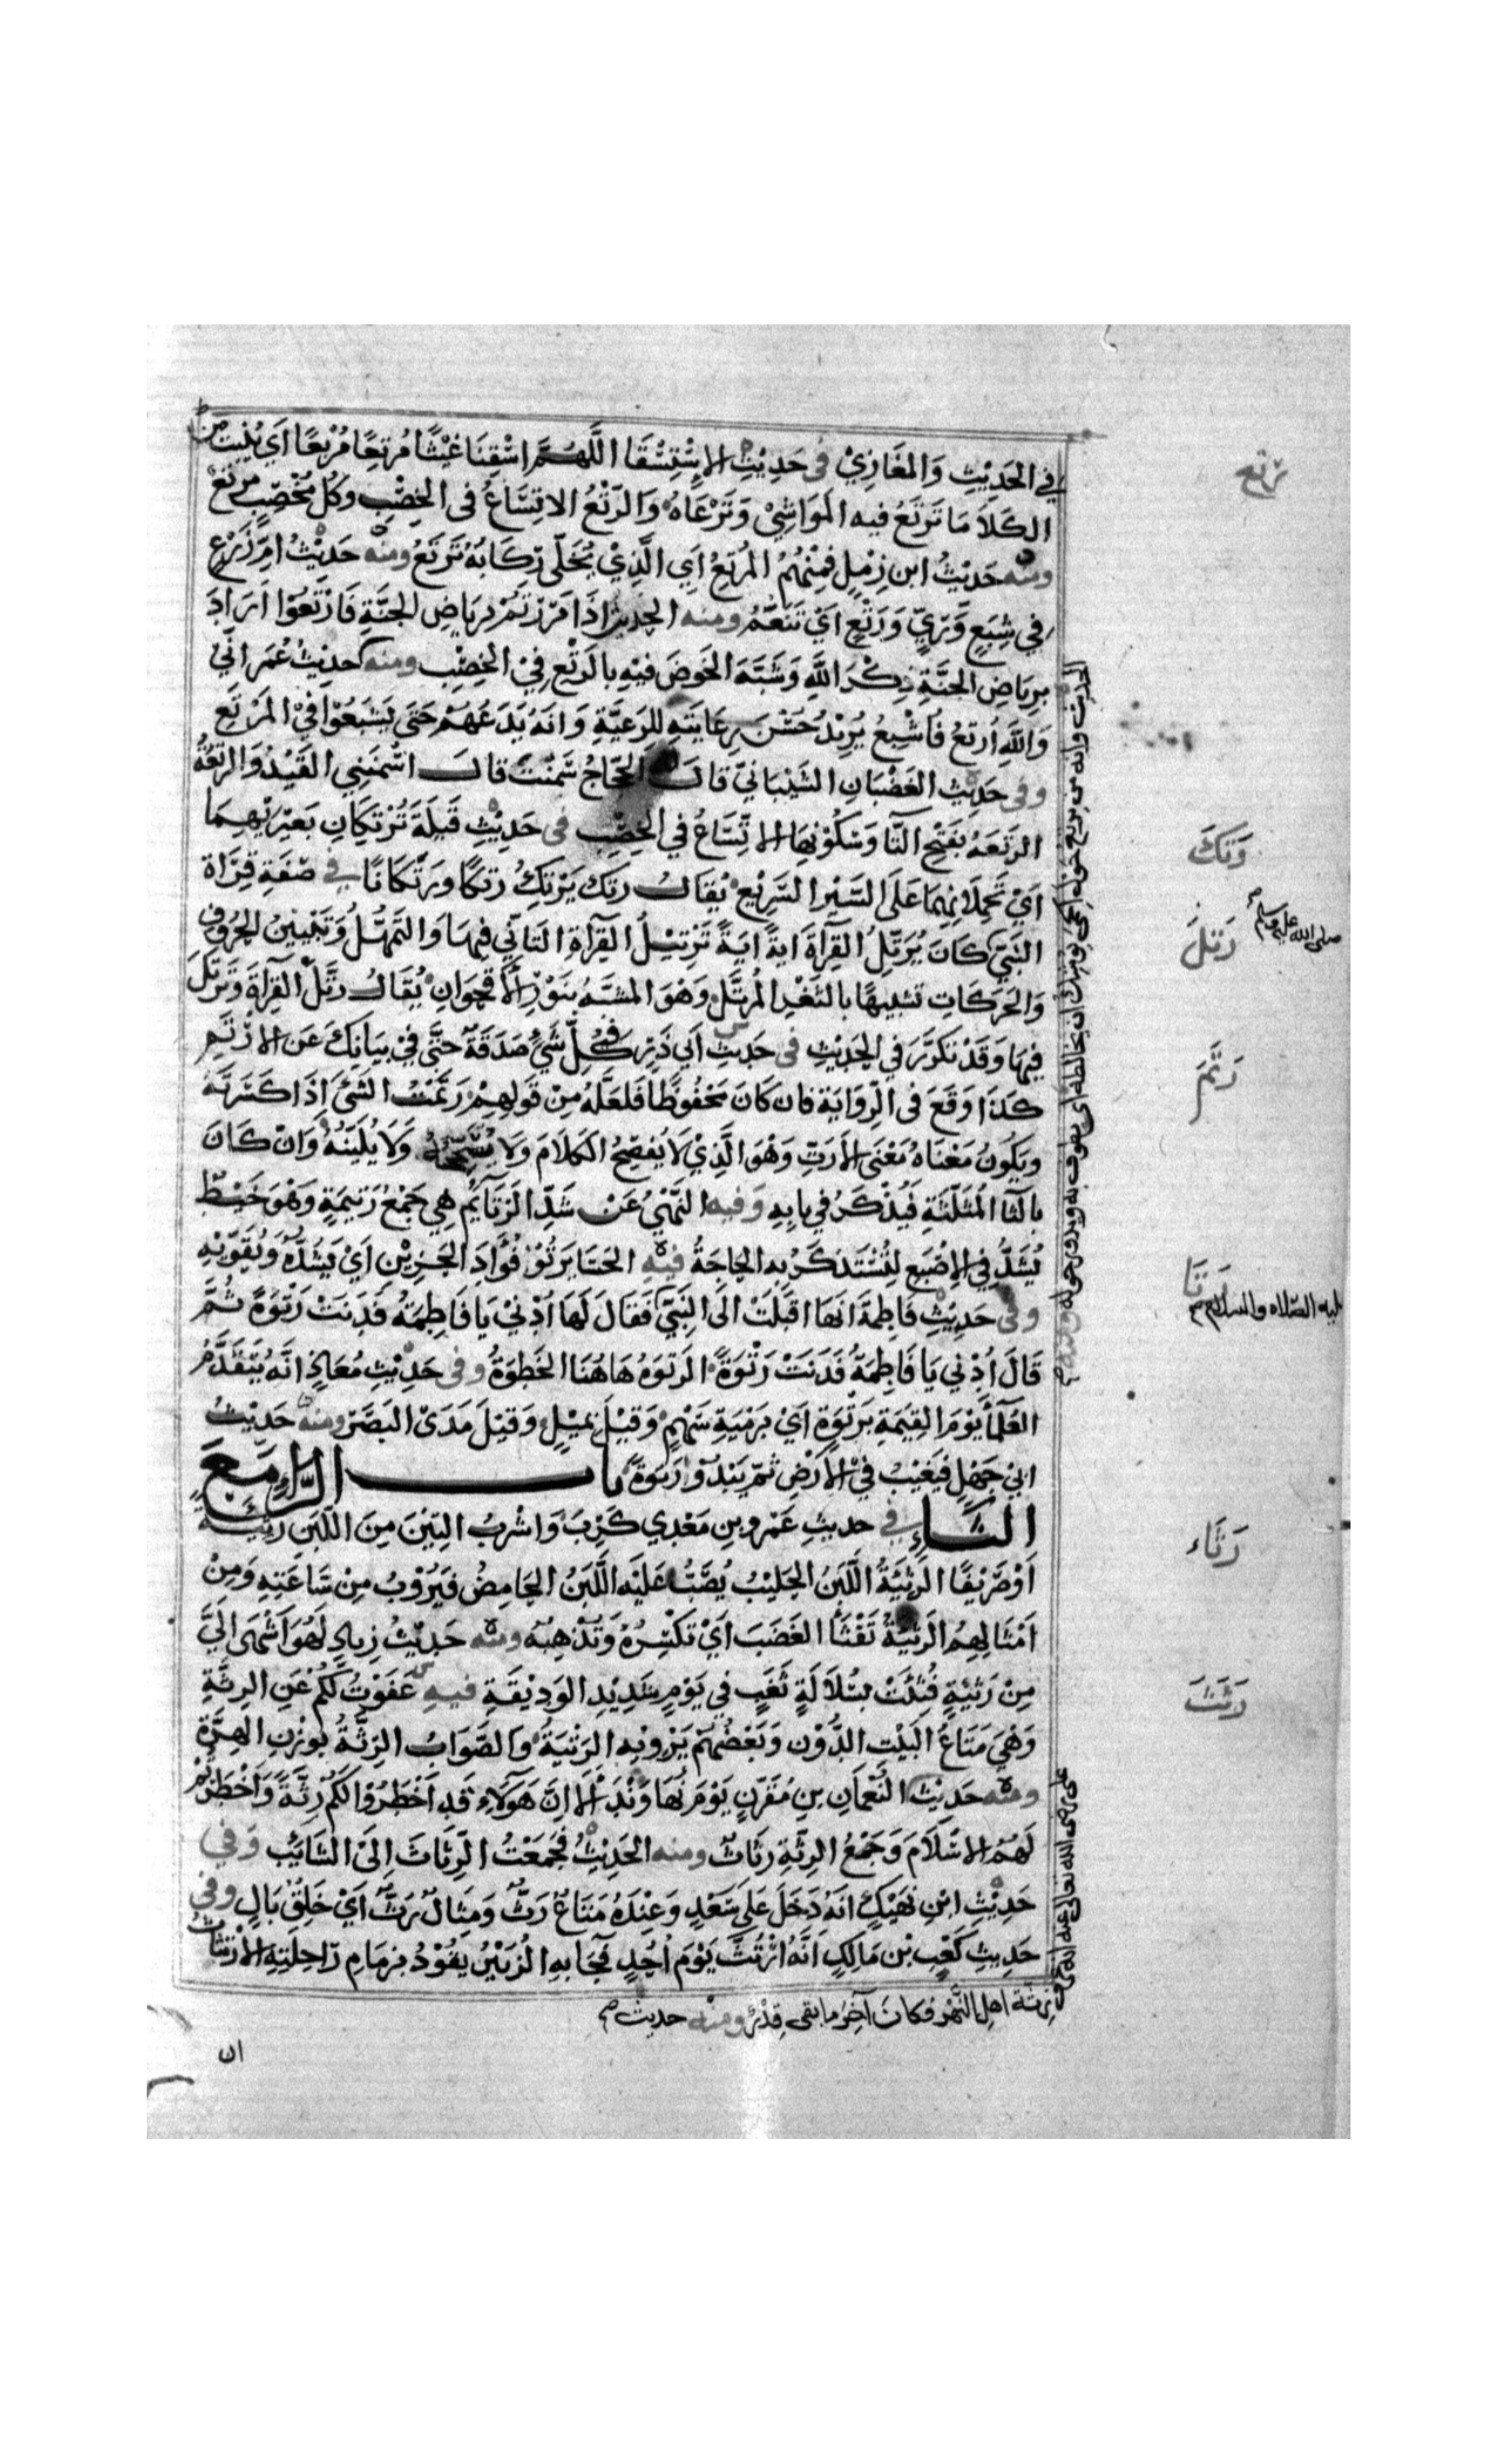 في الحَدِيْثِ وَالمغَازِيْ في حَدِيْثِ الاِسْتِسْقَا اللَّهُمَّ اسْقِنَا غَيْثًا مُرْتِعًا مُرْبِعًا اَي يُنْبِتُ من
الكَلَا مَا تَرْتَعُ فيه المَوَاشِيْ وَتَرْعَاهُ وَالرَّتْعُ الاتِسَّاعُ فى الخِصْبِ وكُل مُخْصِبٍ مُرتِعٌ
ومنه حَدِيْثُ ابن زِمْلٍ فمِنْهُمُ المُرْتِعُ اَي الَّذِيْ يُخَلّي رِكَابَهُ تَرْتَعُ ومنه حَدِيْثُ اُمِّ زَرْعٍ
في شِبَعٍ وَّرِيٍّ وَرَتْعٍ اَيْ تَنَعُّمٍ ومنه الحَدِيْثُ اِذَا مَرَرْتُمْ بِرِيَاضِ الجَنَّةِ فَارْتَعُوْا اَرَادَ
بِرِيَاضِ الجَنَّةِ ذِكْرَ اللَّهِ وَشَبَّهَ الخَوضَ فيْهِ بالرَتْعِ فِيْ الخِصْبِ ومنه حَدِيْثُ عُمَرَ اِنّي
وَاللَّهِ اُرتِعُ فَاُشْبِعُ يُرِيْدُ حُسْنَ رِعَايَتِهِ لِلرَعِيَّةِ وَانَهُ يَدَعُهُمْ حَتَى يَشْبَعُوْا فِيْ المَرْتَعِ
وفى حَدِيْثِ الغَضْبَانِ الشَيْبَانيّ قالَ لَهُ الحَجَّاجُ سَمِنْتَ قالَ اَسْمَنَنِي القَيْدُ وَالرَتَعَةُ
الرَتَعَهُ بفَتْحِ التَّا وَسُكُوْنِهَا الاتِّسَاعُ في الخِصْبِ فى حَدِيْثِ قَيْلَةَ تُرْتِكَانِ بَعِيْرَيْهِمَا
اَيْ تَحْمِلَانِهِمَا عَلَى السَّيْرِ السَّرِيْعِ يُقَالُ رتك يَرْتِكُ رتكًا ورَتَكَانًا في صِفَةِ قِرَاة
النَبِيّ كَانَ يُرَتِّلُ القِرآةَ ايَةً ايَةً تَرْتِيْلُ القِرَآةِ التَانّي فِيهَا وَالتَمَهُّلُ وَتَبْيِينُ الحُرُوفِ
وَالحَرَكَاتِ تشبيهًا بالثَغْرِ المُرَتَّلِ وَهْوَ المشَبَّهُ بنَوْرِ الأُقْحُوَانِ يُقَالُ رتَّلَ القِرآةَ وَتَرَتَّلَ
فِيهَا وَقَدْ تكَرَّرَ في الحَدِيْثِ فى حَدِيثِ اَبي ذَرٍّ في كُلِّ شَيْءٍ صَدَقَةٌ حَتَّى فيْ بَيَانِكَ عَنِ الاَرْتَمِ
كَذَا وَقَعَ فى الرِّوَايَة فان كَانَ مَحْفُوظًا فَلَعَلَّهُ مِنْ قَولِهِمْ رَتَمْتُ الشَيْءَ اِذَا كَسَرْتَهُ
ويَكُوْنُ مَعْنَاهُ مَعْنَى الاَرَتِّ وَهْوَ الَّذِيْ لَا يُفْصِحُ الكَلَامَ وَلَا يُصَحِّحُهُ وَلَا يُبَيِّنُهُ وَانْ كَانَ
بالثَا المُثَلَّثَةِ فَيُذْكَرُ في بابِهِ وَفيه النَهْيُ عَنْ شَدِّ الرَتَايِم هِيَ جَمْعُ رَتِيمَةٍ وَهْوَ خَيْطٌ
يُشَدُّ فِي الاِصْبَعِ لِتُسْتَذكَرُ به الحاجَةُ فيه الحَسَا يَرتُوْ فُؤَادَ الحَزِيْنِ اَيْ يَشُدُّهُ وَيُقَوّيْهِ
وفى حَدِيْثِ فَاطِمَةَ اَنهَا اقَبَلَتْ الَى النَبِيّ فَقَالَ لَهَا اُدْنِيْ يَا فَاطِمَةُ فَدَنَتْ رَتْوَةً ثُمَّ
قَالَ اُدْنِي يَا فَاطِمَةُ فَدَنَتْ رَتْوَةً الرَتوَهُ هَاهُنَا الخَطوَةُ وفى حَدِيْثِ مُعَاذٍ انَّهُ يَتَقَدَّمُ
العُلَمَاءَ يَوْمَ القِيمَةِ برَتْوَةٍ اَيْ بَرَمْيَةِ سَهْمٍ وَقِيْلَ بِمِيْلٍ وَقيْلَ مَدَى البَصَرِ ومنه حَدِيْثُ
ابي جَهْلٍ فيَغِيْبُ فيْ الاَرْضِ ثمّ يَبْدُوْ رَتوَةً باب الرَّاءِ مَعَ
الثَّاءِ في حديثِ عَمْرِو بنِ مَعْدِي كَرِبَ وَاشْرَبُ التِبْنَ مِنَ اللَّبَنِ رَثِيْةً
اَوْصَرِيْفًا الرَثِيْئَةُ اللَّبَنُ الحَلِيْبُ يُصَبُّ عَلَيْهِ اللَّبَنُ الحَامِضُ فيَرُوْبُ مِنْ سَاعَتِهِ وَمِنْ
اَمْثَالِهِمُ الرَثِيْئَةُ تَفْثَأُ الغَضَبَ اَيْ تَكْسِرُهُ وَتُذْهِبُهُ ومنه حَدِيْثُ زِيادٍ لَهُوَ اَشْهَى اِلَيَّ
مِنْ رَثِيْئَةٍ فُثِئَتْ بسُلَالَةِ ثَغَبٍ في يَوْمٍ شَدِيْدِ الوَدِيْقَةِ فيه عَفَوْتُ لَكُمْ عَنِ الرِثَّةِ
وَهْيَ مَتَاعُ البَيْتِ الدُّوْنِ وَبَعْضُهُمْ يَرْوِيْهِ الرَثِيَةُ وَالصَّوَابُ الرِثَّةُ بوَزْنِ الهِرَّةِ
ومنه حَدِيْثُ النُّعْمَانِ بنِ مُقَرِّنٍ يَوْمَ نُهَاوَنْدَ اَلَا اِنَّ هَوَلَاءِ قَدِ اَخْطَرُوْا لَكُمْ رِثَّةً وَاَخْطَرْتُمْ
لَهُمُ الاسْلَامَ وَجَمْعُ الرِثَّةِ رِثَاثٌ ومنه الحَدِيْثُ فجُمِعَتْ الرِّثَاثُ اِلَى السَّائِبِ وَفي
حَدِيْثِ ابْنِ نَهِيْكٍ انَهُ دَخَلَ عَلَى سَعْدٍ وَعِنْدَهُ مَتَاعٌ رَثٌّ وَمِثَالٌ رَثٌّ اَيْ خَلِقٌ بَالٍ وفي
حَدِيثِ كَعْبِ بْنِ مَالِكٍ اَنَّهُ ارْتُثَّ يَوْمَ اُحُدٍ فَجَا بهِ الزُبَيْرُ يَقُوْدُ بزمَامِ رَاحِلَتِهِ الاِرْتِثَاثُ
رتع
رَتَكَ
صلى الله عليه وسلم
رَتَلَ
رَتَمَ
رَتَا
عليه الصلاه والسلام
رَثَاء
رَثَثَ
رثة اهل النَّهْر فكان آخِرُ ما بقى قِدْرٌ ومنه حديث
ان